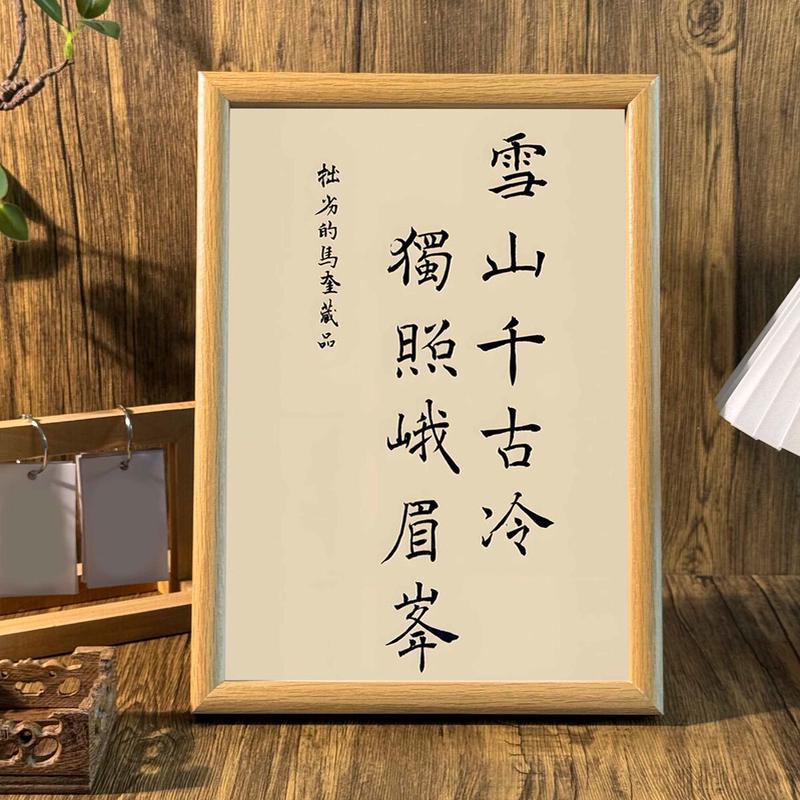 雪山千古冷
獨照峨眉峯
拙劣的馬奎藏品